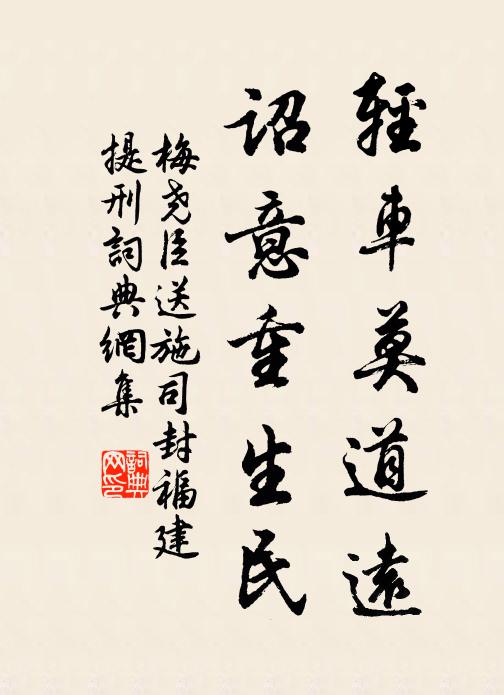 輕車莫道遠
詔意重生民
梅堯臣送施司封福建
提刑詞典網集
詞典
网印